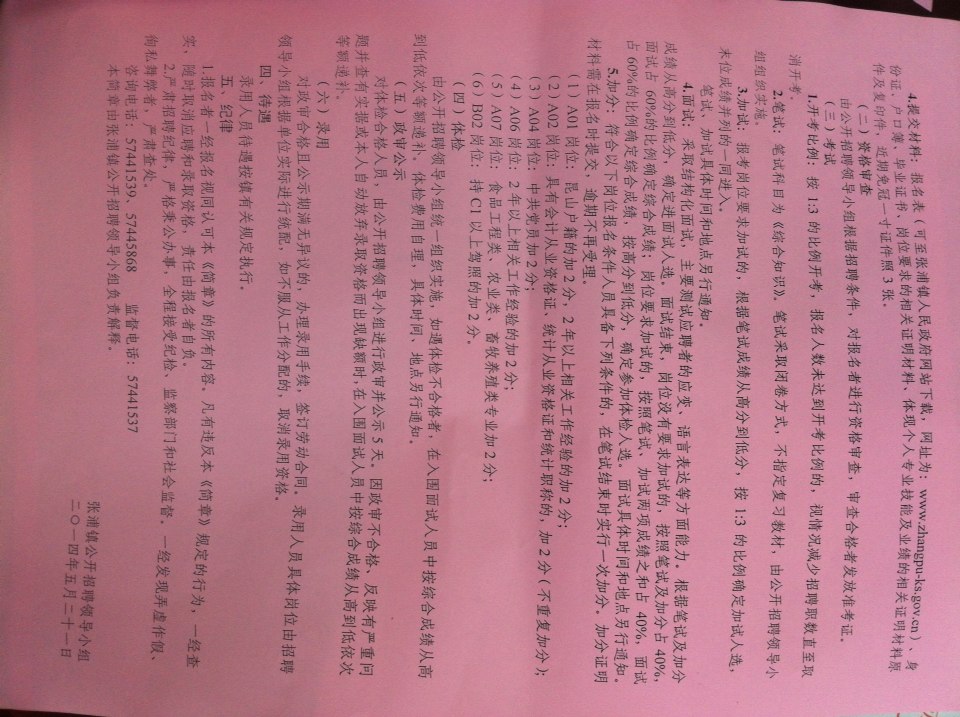 4.提交材料：报名表（可至张浦镇人民政府网站下载，网址为：www.zhangpu-ks.gov.cn）、身
份证、户口簿、毕业证书、岗位要求的相关证明材料、体现个人专业技能及业绩的相关证明材料原
件及复印件，近期免冠一寸证件照 3 张。
（二）资格审查
由公开招聘领导小组根据招聘条件，对报名者进行资格审查，审查合格者发放准考证。
（三）考试
1.开考比例：按 1:3 的比例开考，报名人数未达到开考比例的，视情况减少招聘职数直至取
消开考。
2.笔试：笔试科目为《综合知识》。笔试采取闭卷方式，不指定复习教材，由公开招聘领导小
组组织实施。
3.加试：报考岗位要求加试的，根据笔试成绩从高分到低分，按 1:3 的比例确定加试人选，
末位成绩并列的一同进入。
笔试、加试具体时间和地点另行通知。
4.面试：采取结构化面试，主要测试应聘者的应变、语言表达等方面能力。根据笔试及加分
成绩从高分到低分，确定进面试人选。面试结束，岗位没有要求加试的，按照笔试及加分占 40%，
面试占 60%的比例确定综合成绩；岗位要求加试的，按照笔试、加试两项成绩之和占 40%，面试
占 60%的比例确定综合成绩，按高分到低分，确定参加体检人选。面试具体时间和地点另行通知。
5.加分：符合以下岗位报名条件人员具备下列条件的，在笔试结束时实行一次加分。加分证明
材料需在报名时提交，逾期不再受理。
（1）A01 岗位：昆山户籍的加 2 分，2 年以上相关工作经验的加 2 分；
（2）A02 岗位：具有会计从业资格证、统计从业资格证和统计职称的，加 2 分（不重复加分）；
（3）A04 岗位：中共党员加 2 分；
（4）A06 岗位：2 年以上相关工作经验的加 2 分；
（5）A07 岗位：食品工程类、农业类、畜牧养殖类专业加 2 分；
（6）B02 岗位：持 C1 以上驾照的加 2 分。
（四）体检
由公开招聘领导小组统一组织实施，如遇体检不合格者，在入围面试人员中按综合成绩从高
到低依次等额递补。体检费用自理，具体时间、地点另行通知。
（五）政审公示
对体检合格人员，由公开招聘领导小组进行政审并公示 5 天。因政审不合格、反映有严重问
题并查有实据或本人自动放弃录取资格而出现缺额时，在入围面试人员中按综合成绩从高到低依次
等额递补。
（六）录用
对政审合格且公示期满无异议的，办理录用手续，签订劳动合同。录用人员具体岗位由招聘
领导小组根据单位实际进行统配，如不服从工作分配的，取消录用资格。
四、待遇
录用人员待遇按镇有关规定执行。
五、纪律
1.报名者一经报名视同认可本《简章》的所有内容。凡有违反本《简章》规定的行为，一经查
实，随时取消应聘和录取资格，责任由报名者自负。
2.严肃招聘纪律，严格秉公办事，全程接受纪检、监察部门和社会监督。一经发现弄虚作假、
徇私舞弊者，严肃查处。
咨询电话：57441539、57445868　监督电话：57441537
本简章由张浦镇公开招聘领导小组负责解释。
张浦镇公开招聘领导小组
二〇一四年五月二十一日